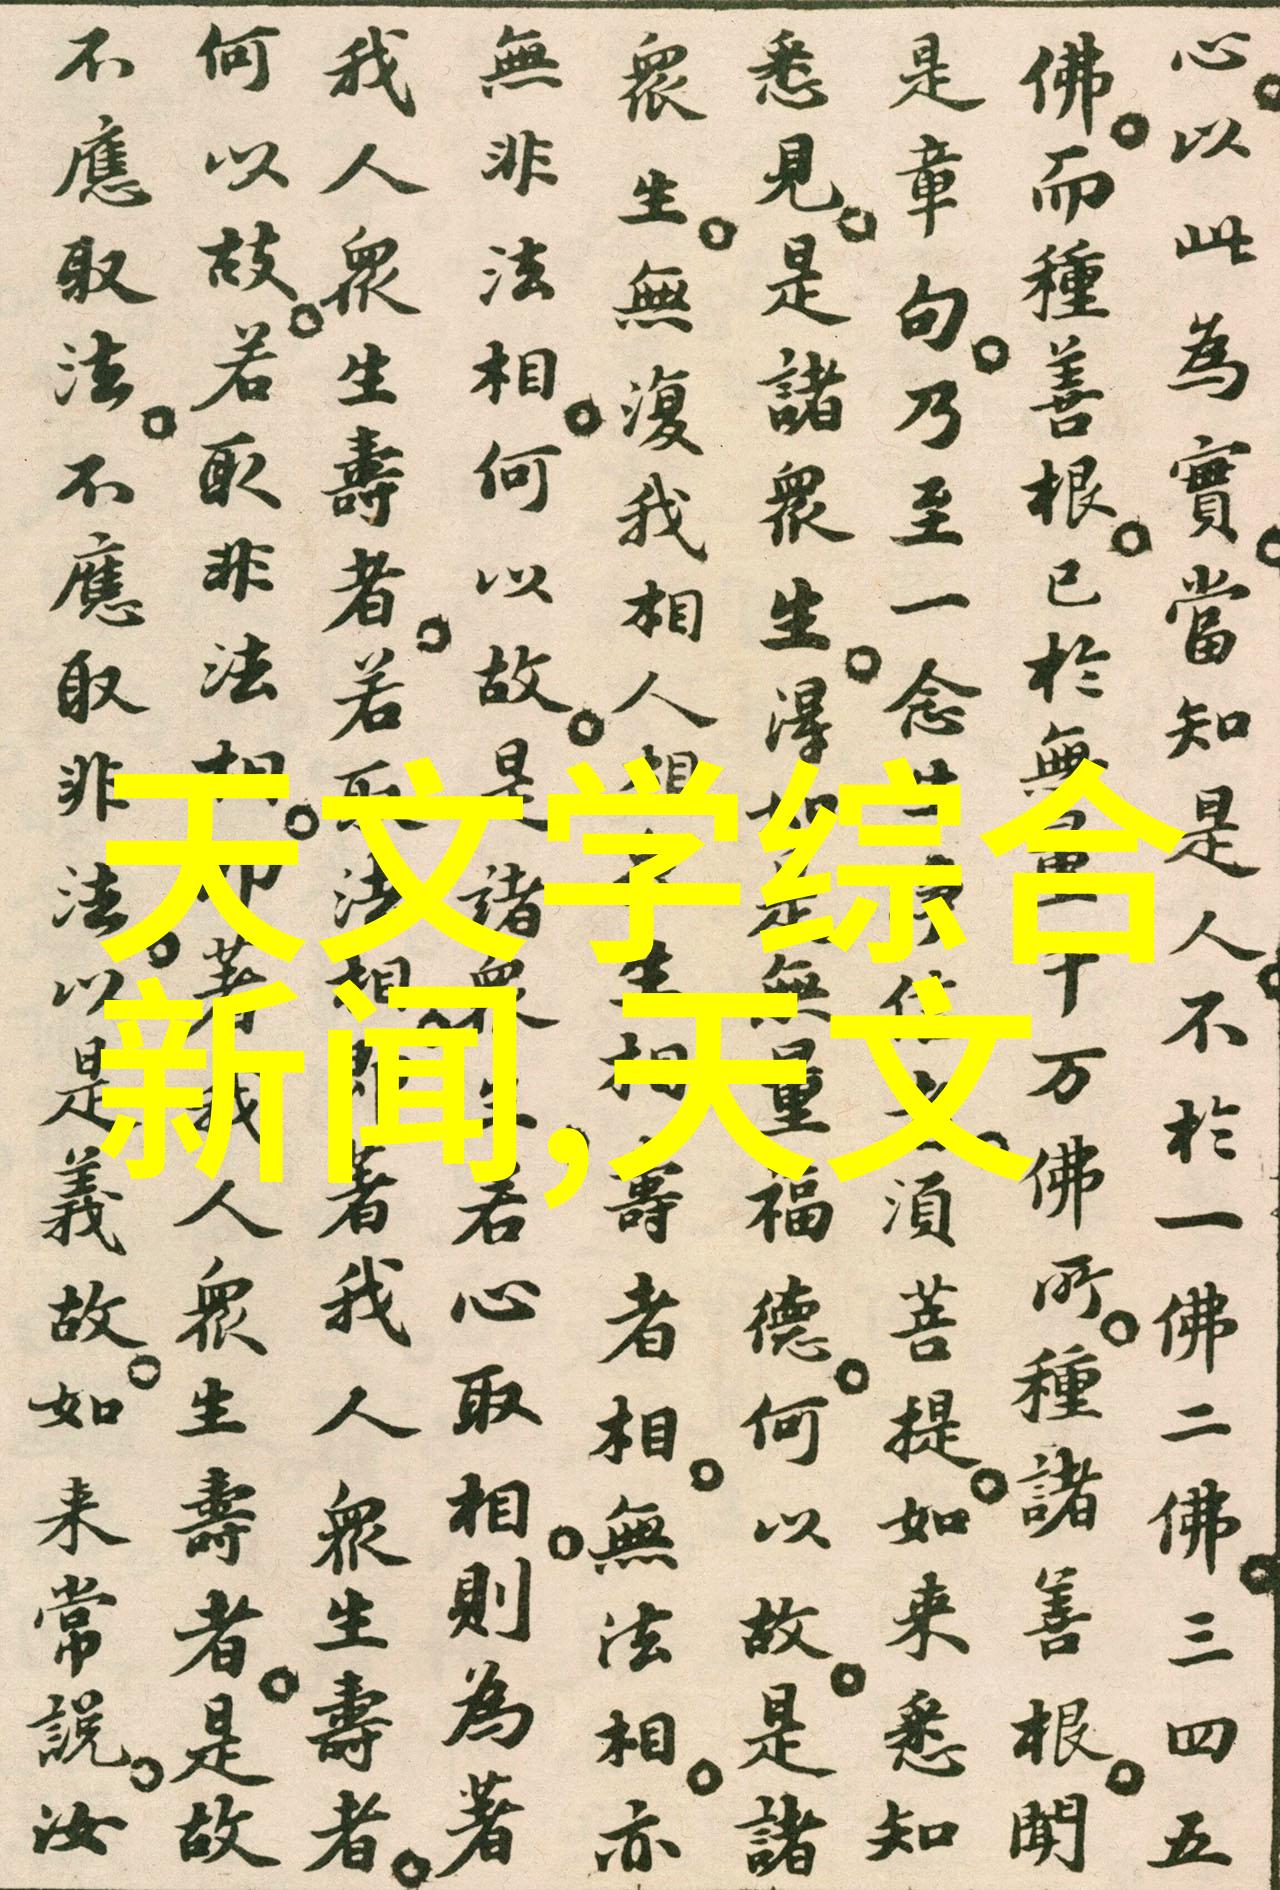 心。以此為實。當知是人。不於一佛二佛。三四五
佛。而種善根。已於無量千万佛所。種諸善根。聞
是章句。乃至一念生信。須菩提。如来悉知
悉見。是諸衆生。得如是無量福德。何以故。是諸
衆生。無復我相人相生相壽者相。無法相。亦
無非法相。何以故。是諸衆生。若心取相。則為著
我人衆生壽者。若取法相。即著我人衆生壽者。
何以故。若取非法相。即著我人衆生壽者。是故
不應取法。不應取非法。以是義故。如来常說。汝
天文学综合
新闻,天文